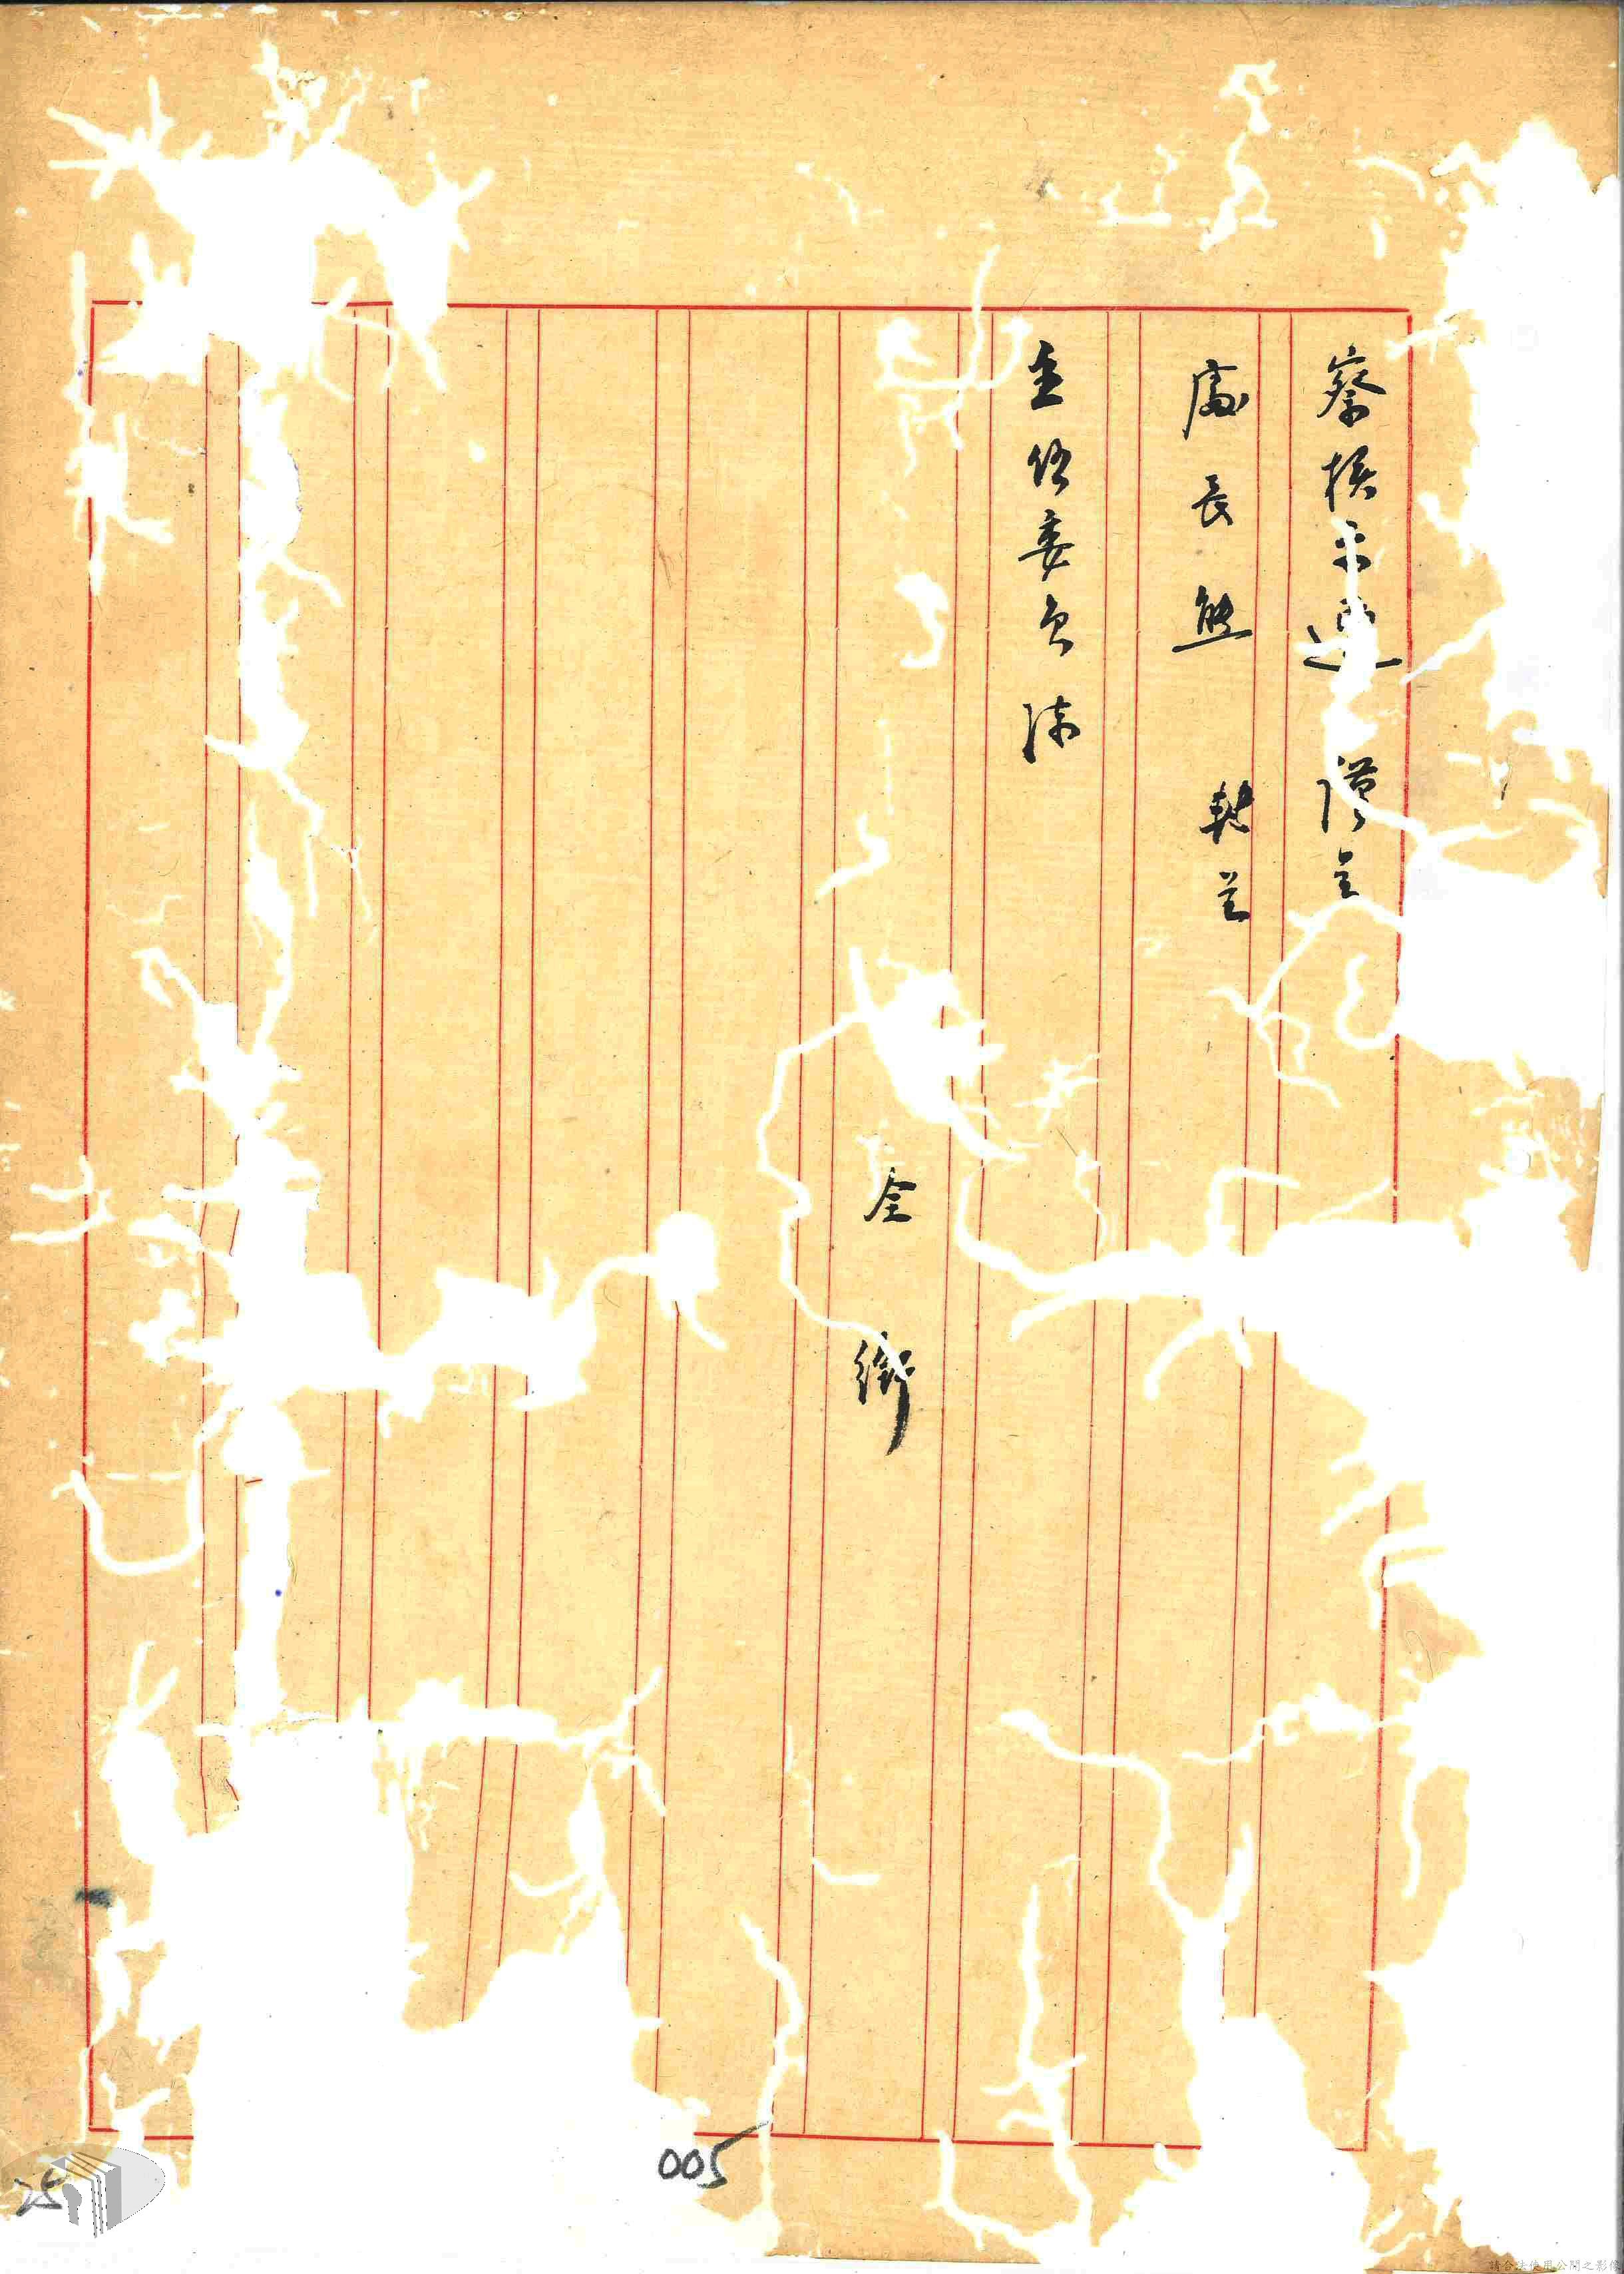 察核示遵 謹呈
處長熊 轉呈
主任委員陳
全銜
005
25
請合法使用公開之影像